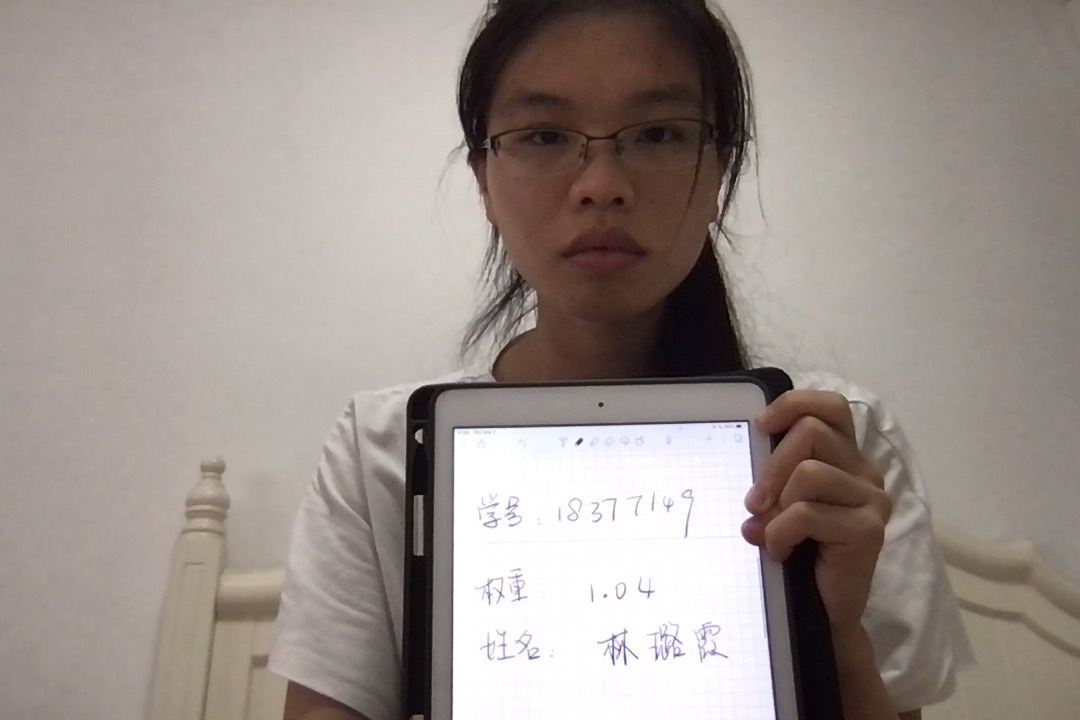 学号：18377149
权重：1.04
姓名：林璐霞